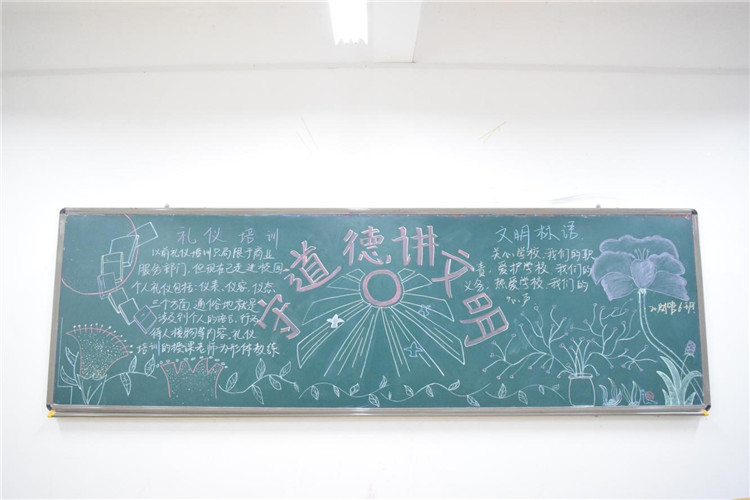 礼仪培训
以前礼仪培训只局限于商业
服务部门,但现在已走进校园
个人礼仪包括:仪表、仪容、仪态
三个方面,通俗地就是
涉及到个人的语言、行为
待人接物等内容。礼仪
培训的授课老师为形体教练
守道德,讲文明
文明标语
关心学校,我们的职
责。爱护学校,我们的
义务。热爱学校,我们的